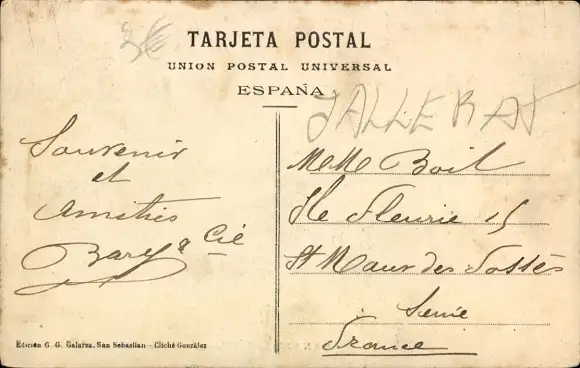 3€
TARJETA POSTAL
UNION POSTAL UNIVERSAL
ESPAÑA
Souvenir
et
Amitiés
Bary & Cie
MeM Boil
Ile Fleurie 15
St Maur des Fossés
Seine
France
Edición G. G. Galarza, San Sebastian - Cliché González